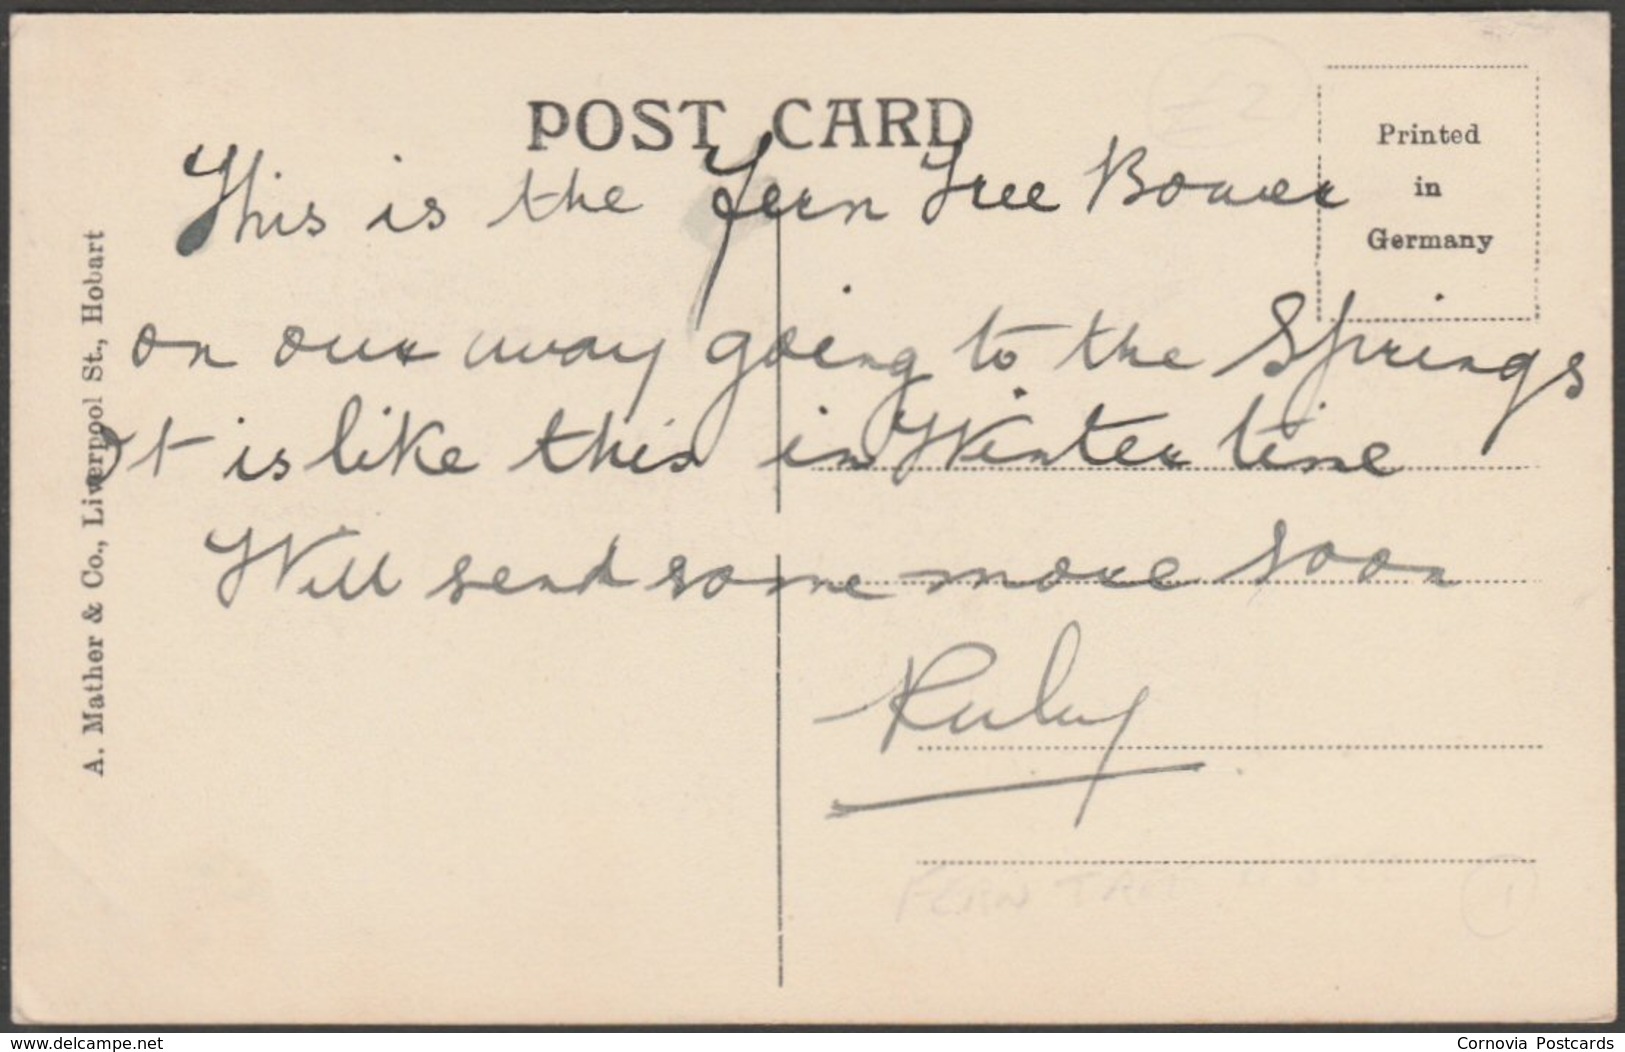 POST CARD
Printed
in
Germany
A. Mather & Co., Liverpool St., Hobart
This is the Fern Tree Bower
on our way going to the Springs
It is like this in Winter time
Will send some more soon
Ruby
£2
FERN TREE
1
www.delcampe.net
Cornovia Postcards